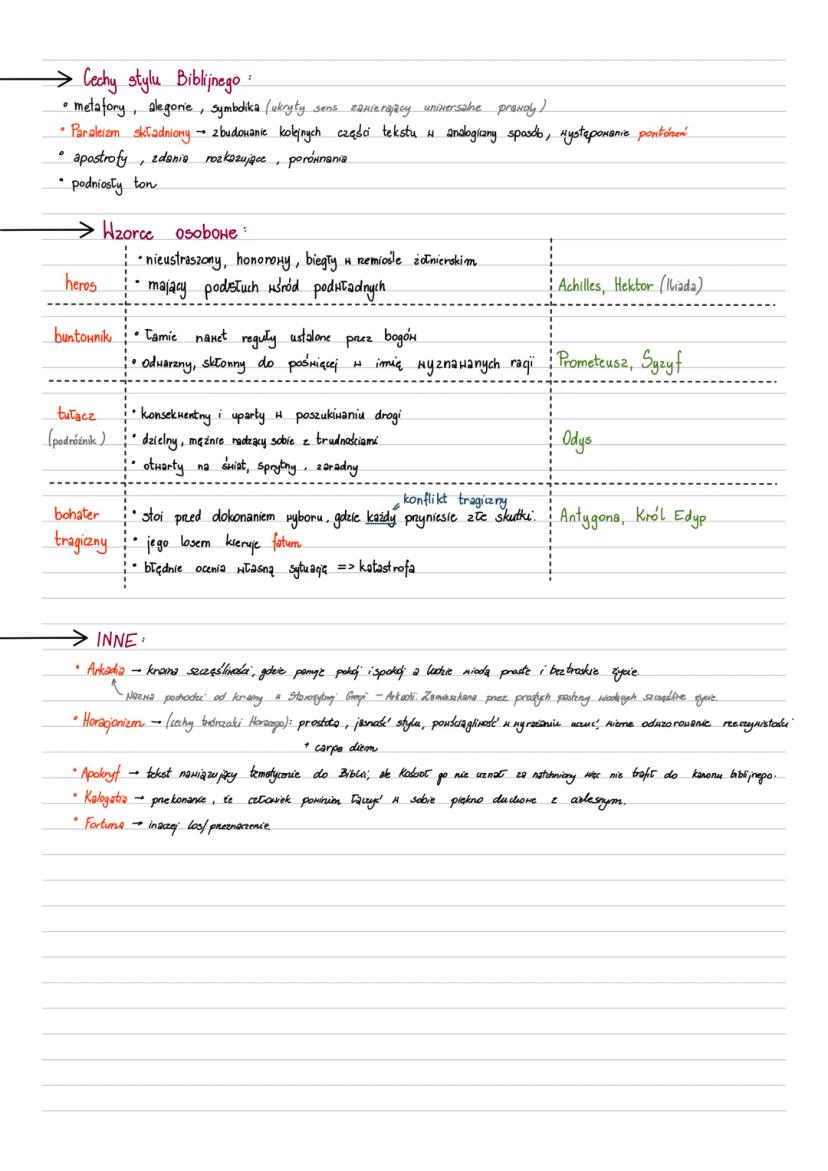 Cechy stylu Biblijnego:
• metafory, alegorie, symbolika (ukryty sens zawierający uniwersalne prawdy)
• Paraleizm składniowy → zbudowanie kolejnych części tekstu w analogiczny sposób, występowanie powtórzeń
• apostrofy, zdania rozkazujące, porównania
• podniosły ton
Wzorce osobowe:
• nieustraszony, honorowy, biegły w rzemiośle żołnierskim
heros • mający podsłuch wśród podwładnych Achilles, Hektor (Iliada)
buntownik • łamie nawet reguły ustalone przez bogów
• odważny, skłonny do poświęcej w imię wyznawanych racji Prometeusz, Syzyf
tułacz • konsekwentny i uparty w poszukiwaniu drogi
(podróżnik) • dzielny, mężnie radzący sobie z trudnościami Odys
• otwarty na świat, sprytny, zaradny
konflikt tragiczny
bohater • stoi pred dokonaniem wyboru, gdzie każdy przyniesie złe skutki. Antygona, Król Edyp
tragiczny • jego losem kieruje fatum
• błędnie ocenia własną sytuację => katastrofa
INNE:
• Arkadia → kraina szczęśliwości, gdzie panuje pokój i spokój a ludzie wiodą proste i beztroskie życie.
Nazwa pochodzi od krainy w Starożytnej Grecji – Arkadii. Zamieszkana przez prostych pasterzy wiodących szczęśliwe życie.
• Horacjonizm → (cechy twórczości Horacego): prostota, jasność stylu, powściągliwość w wyrażaniu uczuć, wierne odwzorowanie rzeczywistości
+ carpe diem
• Apokryf → tekst nawiązujący tematycznie do Biblii, ale Kościół go nie uznał za natchniony więc nie trafił do kanonu biblijnego.
• Kalogatia → przekonanie, że człowiek powinien łączyć w sobie piękno duchowe z cielesnym.
• Fortuna → inaczej los/przeznaczenie.